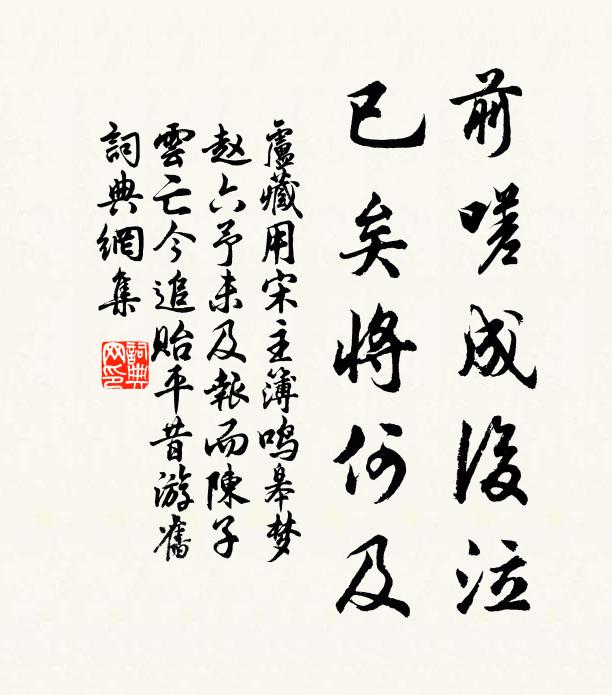 前嗟成後泣
已矣將何及
盧藏用宋主簿鸣皋梦
赵六予未及報而陳子
雲亡今追貽平昔游舊
詞典網集
詞典網印